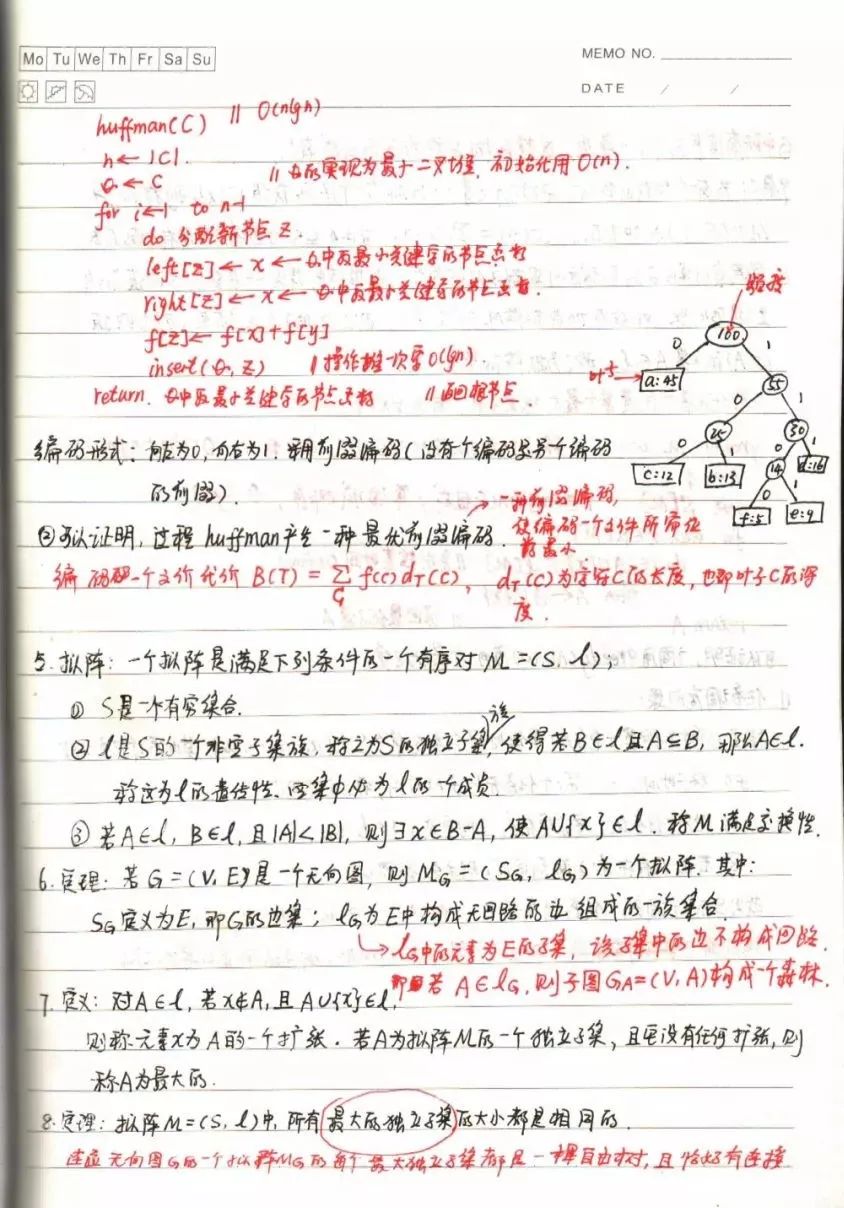 Mo Tu We Th Fr Sa Su
MEMO NO.
DATE / /
huffman(C) // O(nlgn)
n←|C|
Q←C // Q的实现为最小二叉堆, 初始化用O(n).
for i←1 to n-1
do 分配新节点 z
left[z]←x←Q中取最小关键字的节点去掉
right[z]←x←Q中取最小关键字的节点去掉.
f[z]←f[x]+f[y]
insert(Q, z) //操作堆一次需O(lgn)
return. Q中取最小关键字的节点去掉 //返回根节点
频度
100
0 1
叶子
a:45
55
0 1
25
30
0 1
0 1
c:12
b:13
14
d:16
0 1
f:5
e:9
编码形式: 向左为0, 向右为1. 采用前缀编码(没有个编码是另个编码
的前缀).
②可以证明, 过程 huffman产生一种最优前缀编码.
一种前缀编码,
使编码一个文件所需位
数最小
编码一个文件代价 B(T) = ∑ f(c) d_T(c), d_T(c)为字符C的长度, 也即叶子C的深
C
度.
5. 拟阵: 一个拟阵是满足下列条件的一个有序对 M=(S, l);
① S是一个有穷集合.
② l是S的一个非空子集族, 称之为S的独立子集族, 使得若B∈l且A⊆B, 那么A∈l.
称这为l的遗传性. 空集中必为l的一个成员.
③ 若A∈l, B∈l, 且|A|<|B|, 则∃x∈B-A, 使A∪{x}∈l. 称M满足交换性.
6. 定理: 若G=(V, E)是一个无向图, 则M_G=(S_G, l_G)为一个拟阵. 其中:
S_G定义为E, 即G的边集; l_G为E中构成无回路的边组成的一族集合.
→l_G中的元素为E的子集, 该子集中的边不构成回路
即若 A∈l_G, 则子图G_A=(V, A)构成一个森林.
7. 定义: 对A∈l, 若x∉A, 且A∪{x}∈l,
则称元素x为A的一个扩张. 若A为拟阵M的一个独立子集, 且它没有任何扩张, 则
称A为最大的.
8. 定理: 拟阵M=(S, l)中, 所有最大的独立子集的大小都是相同的.
连应无向图G的一个拟阵M_G的每个最大独立子集都是一棵自由树, 且恰好有连接